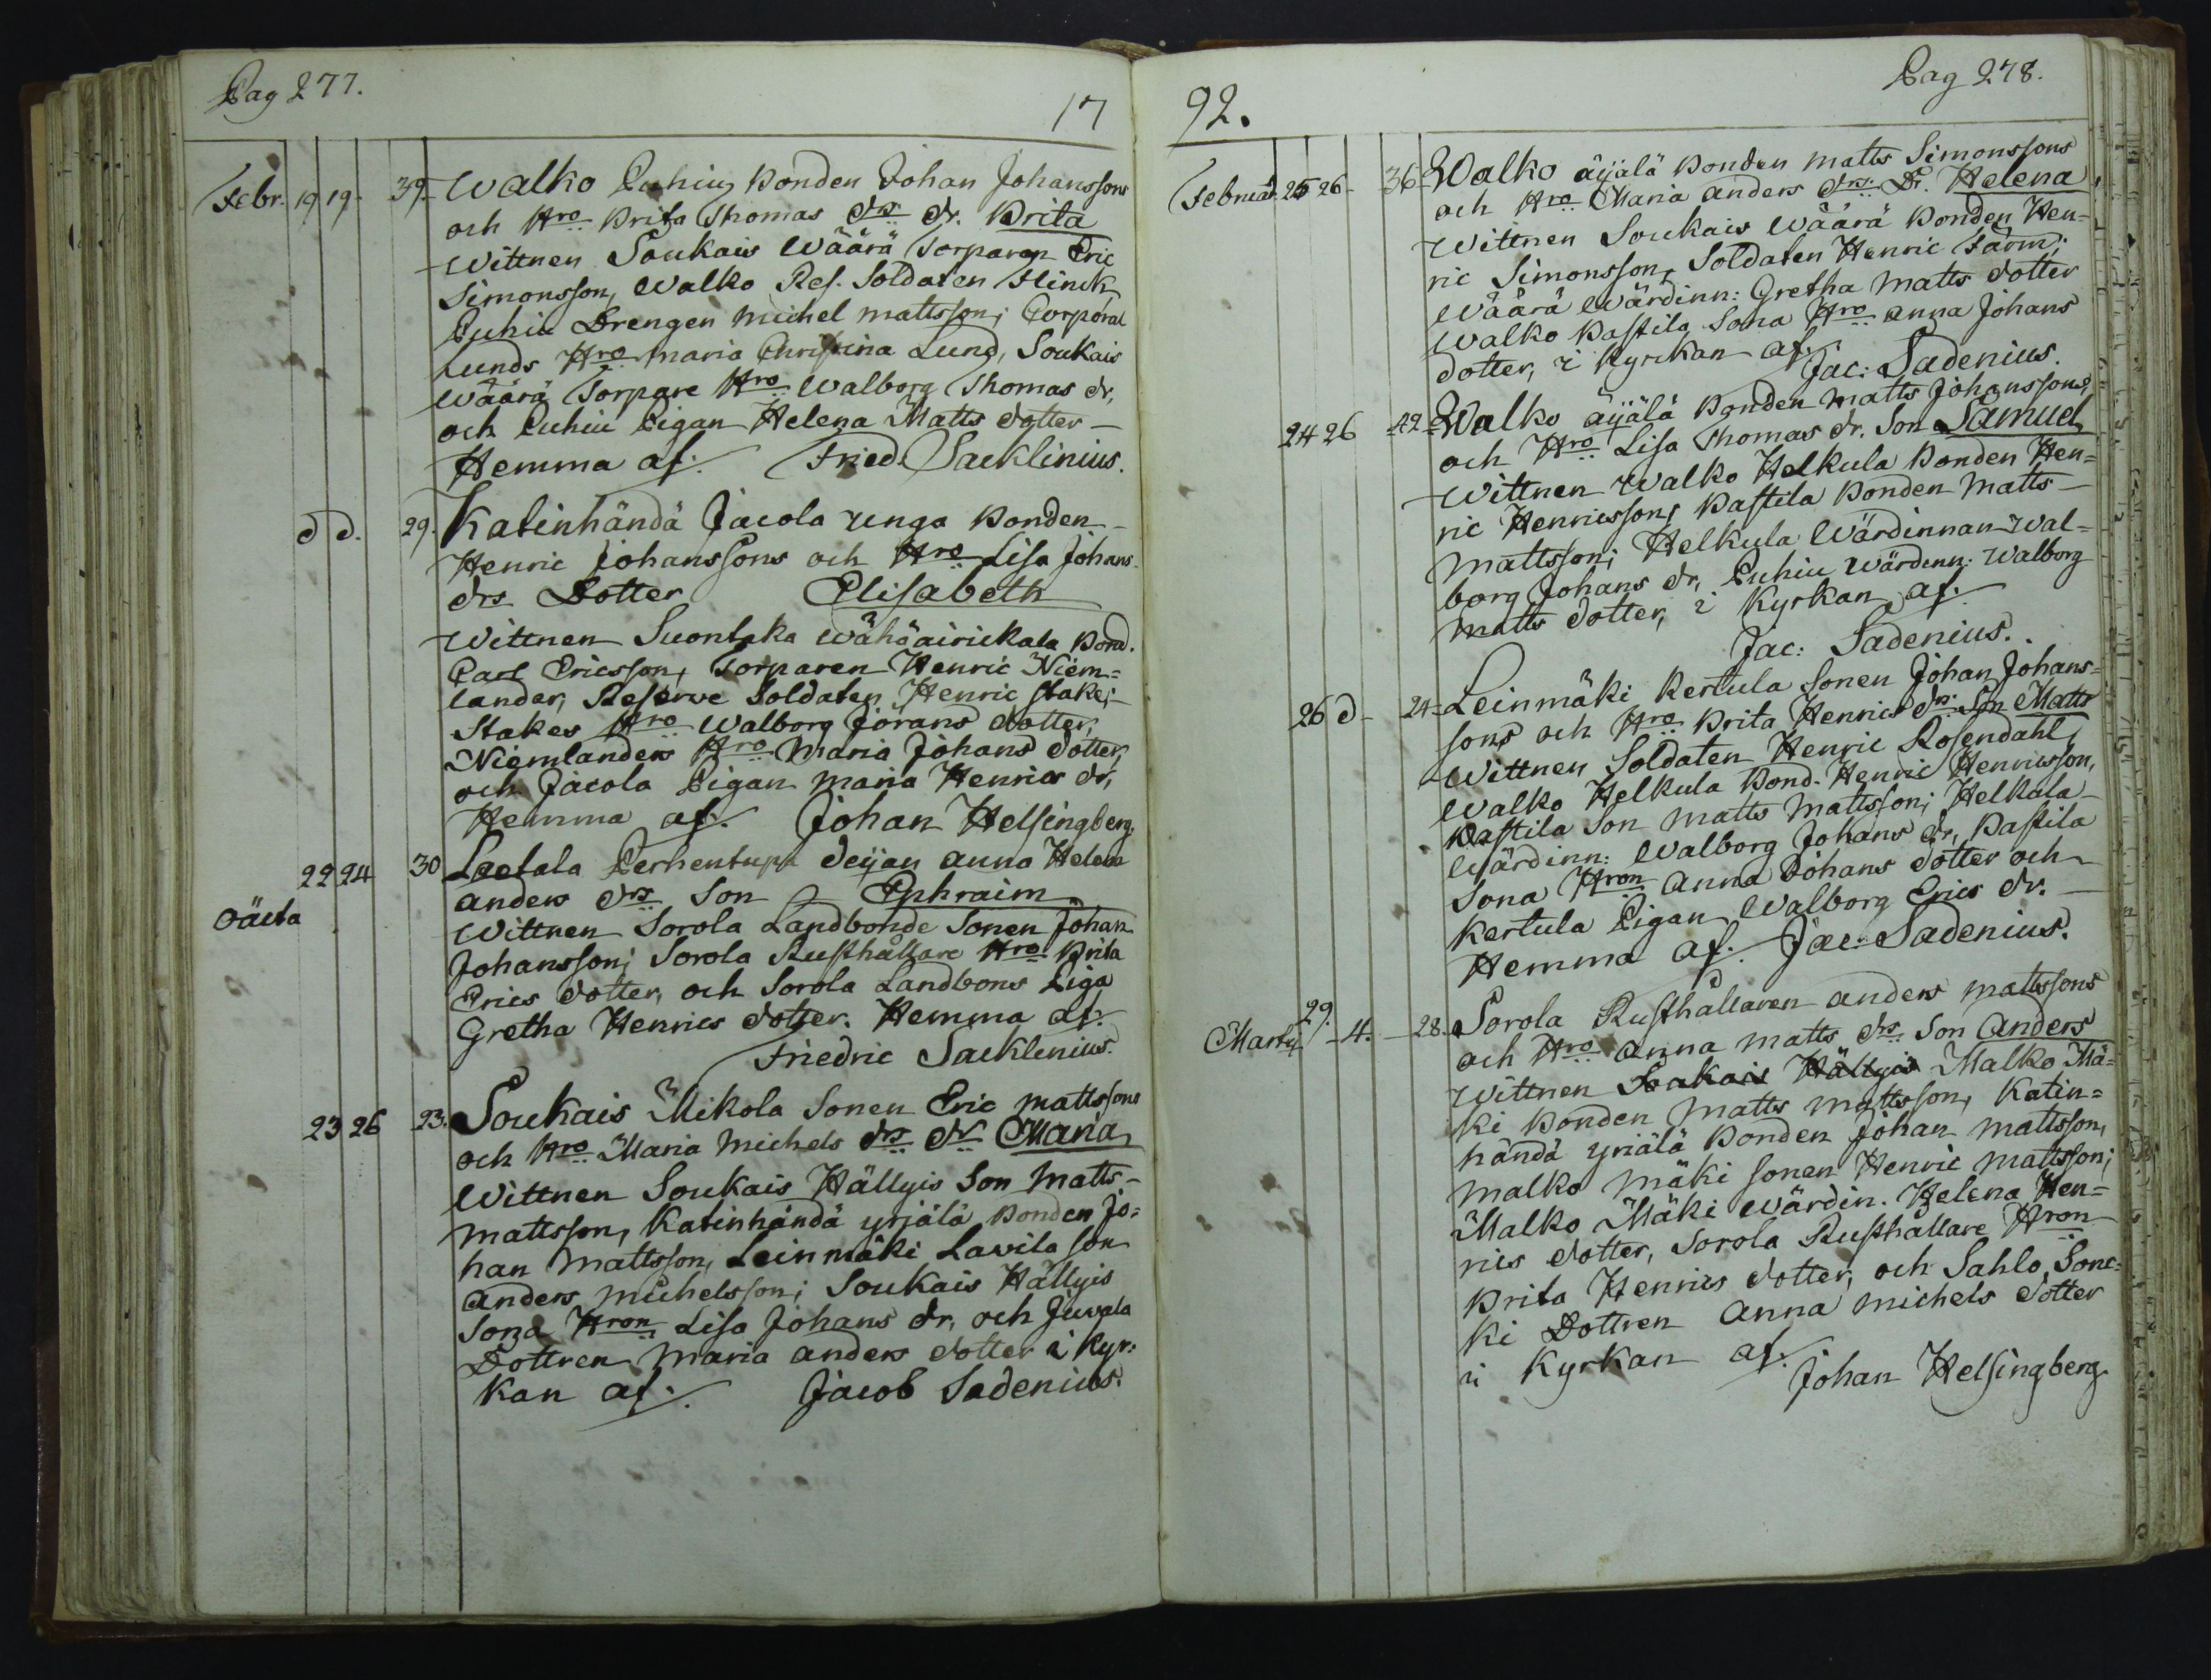 Pag 277.
17
Febr. 19 19. 39. Walko Puhiu Bonden Johan Johanssons
och Hro Brita Thomas drs dr. Brita
Wittnen Soukais Wäärä Torparen Eric
Simonsson, Walko Res. Soldaten Flinck
Puhiu Drengen Michel Mattsson; Corporal
Lunds Hro Maria Christina Lund, Soukais
Wäärä Torpare Hro Walborg Thomas dr,
och Puhiu Pigan Helena Matts dotter
Hemma af. Fried. Sacklinius.
d d. 29. Katinhändä Jacola unga Bonden
Henric Johanssons och Hro Lisa Johans
drs Dotter Elisabeth
Wittnen Suontaka Wähäairickala Bond.
Carl Ericsson, Torparen Henric Niem=
lander, Reserve Soldaten Henric Stake;
Stakes Hro Walborg Jörans dotter,
Niemlanders Hro Maria Johans dotter,
och Jacola Pigan Maria Henrics dr,
Hemma af. Johan Helsingberg.
22 24 30 Laetala Perhentupa dejjan Anna Helena
Anders drs Son Ephraim
oäcta
Wittnen Sorola Landbonde Sonen Johan
Johansson; Sorola Rusthållare Hro Brita
Erics dotter, och Sorola Landbons Piga
Gretha Henrics dotter. Hemma af.
Friedric Sacklenius.
23 26 23. Soukais Mikola Sonen Eric Mattssons
och Hro Maria Michels drs dr Maria
Wittnen Soukais Hällyis Son Matts
Mattsson, Katinhändä yrjälä Bonden Jo=
han Mattsson, Leinmäki Lavila Son
Anders Michelsson; Soukais Hällyis
Sona Hron Lisa Johans dr, och Juvala
Dottren Maria Anders dotter i Kyr=
kan af. Jacob Sadenius.
92.
Pag 278.
Februar. 25 26 36 Walko äijälä Bonden Matts Simonssons
och Hro Maria Anders drs Dr. Helena
Wittnen Soukais Wäärä Bonden Hen=
ric Simonsson, Soldaten Henric Färm;
Wäärä Wärdinn: Gretha Matts dotter
Walko Pastila Sona Hro Anna Johans
dotter, i Kyrkan af. Jac: Sadenius.
24 26 42 Walko äijälä Bonden Matts Johanssons
och Hro Lisa Thomas dr. Son Samuel
Wittnen Walko Helkula Bonden Hen=
ric Henricsson, Pastila Bonden Matts
Mattsson; Helkula Wärdinnan Wal=
borg Johans dr, Puhiu Wärdinn: Walborg
Matts dotter, i Kyrkan af.
Jac: Sadenius.
26 d 24 Leinmäki Kertula Sonen Johan Johans=
sons och Hro Brita Henrics drs Son Matts
Wittnen Soldaten Henric Rosendahl,
Walko Helkula Bond. Henric Henricsson,
Pastila Son Matts Mattsson; Helkula
Wärdinn: Walborg Johans dr, Pastila
Sona Hron Anna Johans dotter och
Kertula Pigan Walborg Erics dr.
Hemma af. Jac: Sadenius.
Martij 29. 4. 28. Sorola Rusthållaren Anders Mattssons
och Hro Anna Matts drs Son Anders
Wittnen Soukais Hällyis Malko Mä=
ki Bonden Matts Mattsson, Katin=
händä yriälä Bonden Johan Mattsson,
Malko Mäki Sonen Henric Mattsson;
Malko Mäki Wärdin. Helena Hen=
rics dotter, Sorola Rusthållare Hron
Brita Henrics dotter, och Sahlo Sonc=
ki Dottren Anna Michels dotter
i Kyrkan af. Johan Helsingberg